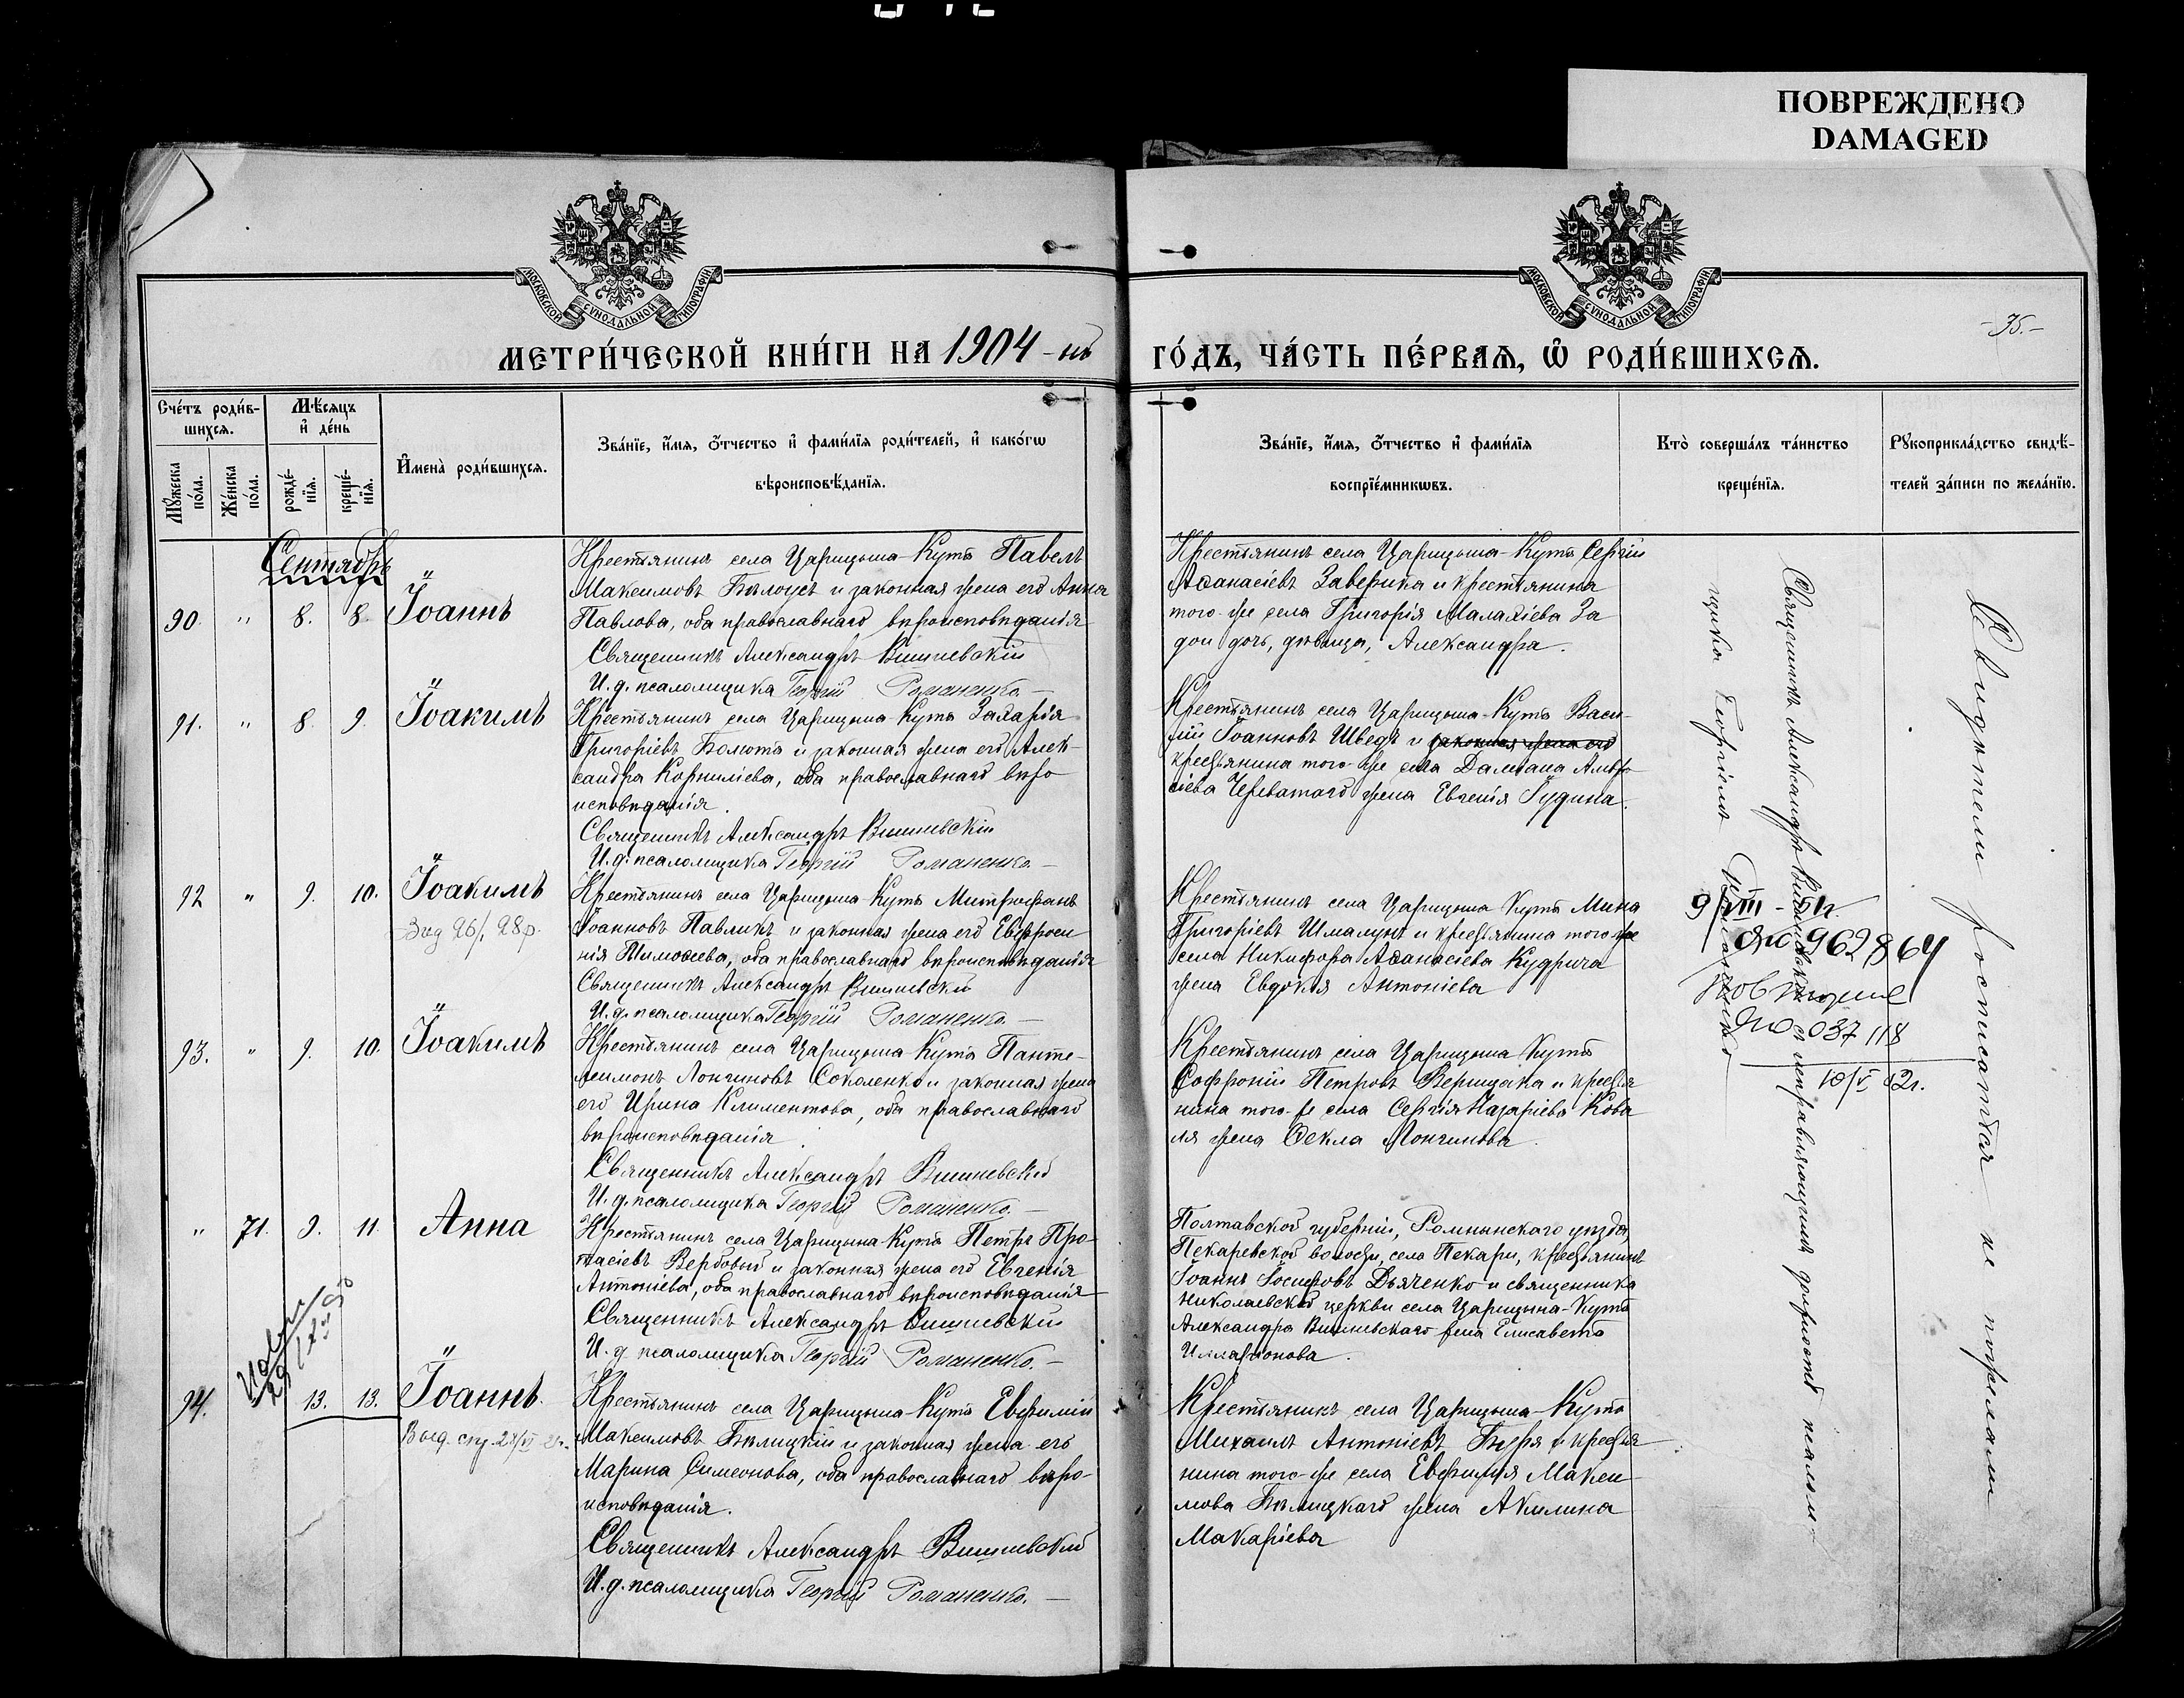 ПОВРЕЖДЕНО
DAMAGED
МОСКОВСКОЙ СѴНОДАЛЬНОЙ ТИПОГРАФІИ
МОСКОВСКОЙ СѴНОДАЛЬНОЙ ТИПОГРАФІИ
-35.-
МЕТРИ́ЧЕСКОЙ КНИ́ГИ НА 1904-нъ
ГО́ДЪ, ЧА́СТЬ ПЕ́РВАЯ, Ѡ҆ РОДИ́ВШИХСѦ.
Сче́тъ роди́в-
шихсѧ.
Мꙋ́жеска
по́ла.
Же́нска
по́ла.
Мѣ́сяцъ
и҆ де́нь
рожде́-
нїѧ.
креще́-
нїѧ.
И҆мена̀ роди́вшихсѧ.
Зва́нїе, и҆́мѧ, ѻ҆́тчество и҆ фами́лїѧ роди́телей, и҆ како́гѡ
вѣроисповѣ́данїѧ.
Зва́нїе, и҆́мѧ, ѻ҆́тчество и҆ фами́лїѧ
воспрїе́мникѡвъ.
Кто̀ соверша́лъ та́инство
креще́нїѧ.
Рꙋкоприкла́дство свидѣ́-
телей за́писи по жела́нїю.
Сентябрь
90. " 8. 8. Іоаннъ
Крестьянинъ села Царицына-Кута Павелъ
Максимовъ Бѣлоусъ и законная жена его Анна
Павлова, оба православнаго вѣроисповѣданія
Священникъ Александръ Вишневскій
И.д. псаломщика Георгій Романенко.—
Крестьянинъ села Царицына-Кута Сергій
Аѳанасіевъ Заверика и крестьянина
того-же села Григорія Малахіева За
дои дочь, дѣвица, Александра.
91. " 8. 9. Іоакимъ
Крестьянинъ села Царицына-Кута Захарія
Григоріевъ Болюта и законная жена его Алек-
сандра Корниліева, оба православнаго вѣро
исповѣданія.
Священникъ Александръ Вишневскій
И.д. псаломщика Георгій Романенко.—
Крестьянинъ села Царицына-Кута Васи-
лій Іоанновъ Шведъ и законная жена его
крестьянина того-же села Даміана Амвро
сіева Череватаго жена Евгенія Гудина.
92 " 9. 10. Іоакимъ
Крестьянинъ села Царицына Кута Митрофанъ
Іоанновъ Павликъ и законная жена его Евфроси
нія Тимоѳеева, оба православнаго вѣроисповѣданія
Священникъ Александръ Вишневскій
И.д. псаломщика Георгій Романенко.—
Крестьянинъ села Царицына Кута Мина
Григоріевъ Шмалунъ и крестьянина того-же
села Никифора Аѳанасіева Кудрича
жена Евдокія Антоніева
93. " 9. 10. Іоакимъ
Крестьянинъ села Царицына Кута Панте-
леимонъ Лонгиновъ Соколенко и законная жена
его Ирина Климентова, оба православнаго
вѣроисповѣданія.
Священникъ Александръ Вишневскій
И.д. псаломщика Георгій Романенко.—
Крестьянинъ села Царицына Кута
Софроній Петровъ Верещака и крестья
нина того-же села Сергія Назаріева Кова
ля жена Ѳекла Лонгинова.
" 71. 9. 11. Анна
Крестьянинъ села Царицына-Кута Петръ Про-
тасіевъ Вербовый и законная жена его Евгенія
Антоніева, оба православнаго вѣроисповѣданія
Священникъ Александръ Вишневскій
И.д. псаломщика Георгій Романенко.—
Полтавской губерніи, Роменскаго уѣзда,
Пекаревской волости, села Пекари, крестьянинъ
Іоаннъ Іосифовъ Дьяченко и священника
Николаевской церкви села Царицына-Кута
Александра Вишневскаго жена Елисавета
Илларіонова.
94. 13. 13. Іоаннъ.
Крестьянинъ села Царицына-Кута Евфимій
Максимовъ Бѣлицкій и законная жена его
Марина Симеонова, оба православнаго вѣро-
исповѣданія.
Священникъ Александръ Вишневскій
И.д. псаломщика Георгій Романенко.—
Крестьянинъ села Царицына-Кута
Михаилъ Антоніевъ Буря и крестья
нина того-же села Евфимія Макси-
мова Бѣлицкаго жена Акилина
Макаріева
Священникъ Александръ Вишневскій съ исправляющимъ должность псалом-
щика Георгіемъ Романенко
9/VIII-51г.
962864
037118
10/V 52г.
Свидѣтели росписаться не пожелали